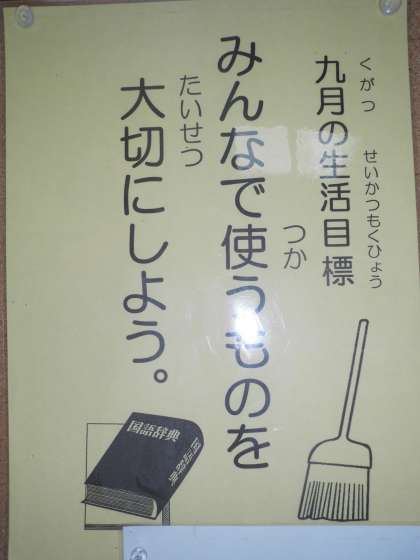 くがつ
せいかつもくひょう
九月の生活目標
つか
みんなで使うものを
たいせつ
大切にしよう。
国語辞典
国語辞典